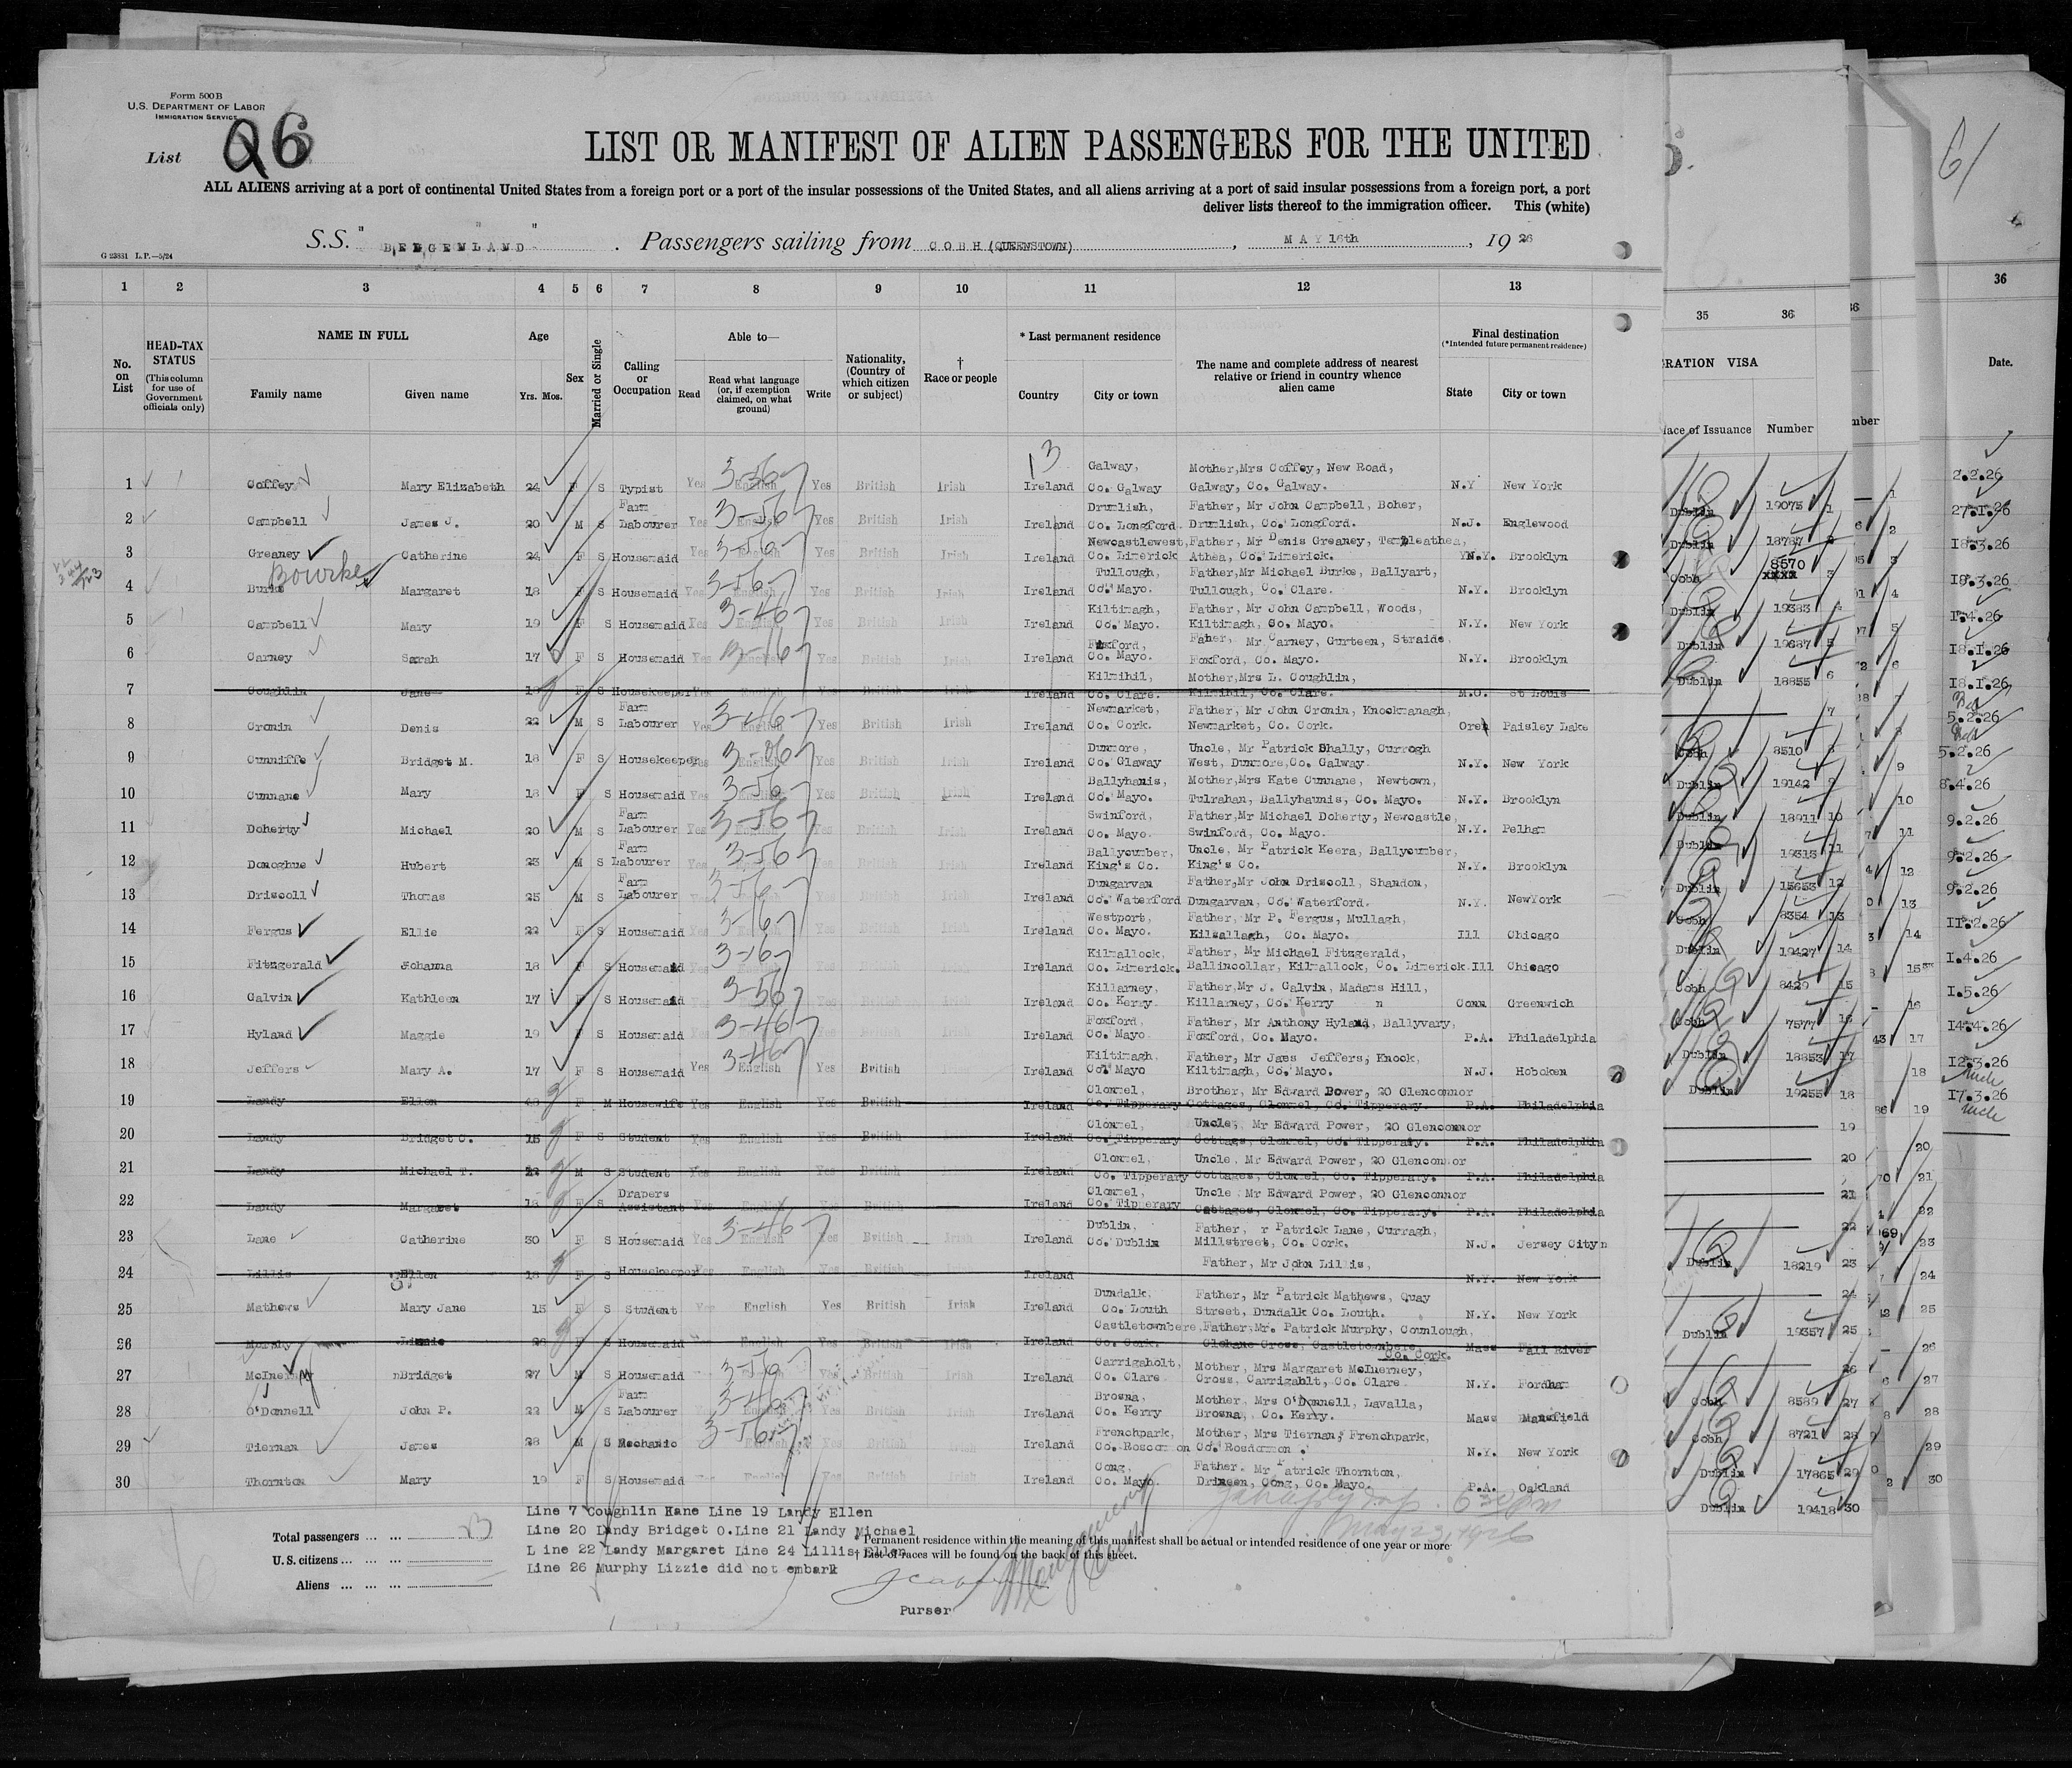 Form 500 B
U.S. DEPARTMENT OF LABOR
IMMIGRATION SERVICE
List 26
LIST OR MANIFEST OF ALIEN PASSENGERS FOR THE UNITED
ALL ALIENS arriving at a port of continental United States from a foreign port or a port of the insular possessions of the United States, and all aliens arriving at a port of said insular possessions from a foreign port, a port
deliver lists thereof to the immigration officer. This (white)
S.S. " BELGENLAND " . Passengers sailing from COBH (QUEENSTOWN) , MAY 16th , 1926
G 23831 L.P.—5/24
1 2 3 4 5 6 7 8 9 10 11 12 13
No. on List
HEAD-TAX STATUS (This column for use of Government officials only)
NAME IN FULL Family name Given name
Age Yrs. Mos.
Sex
Married or Single
Calling or Occupation
Able to— Read Read what language (or, if exemption claimed, on what ground) Write
Nationality, (Country of which citizen or subject)
† Race or people
* Last permanent residence Country City or town
The name and complete address of nearest relative or friend in country whence alien came
Final destination (*Intended future permanent residence) State City or town
1 Coffey Mary Elizabeth 24 F S Typist Yes English Yes British Irish Ireland Galway, Co. Galway Mother,Mrs Coffey, New Road, Galway, Co. Galway. N.Y New York
2 Campbell James J. 20 M S Farm Labourer Yes English Yes British Irish Ireland Drumlish, Co. Longford. Father, Mr John Campbell, Boher, Drumlish, Co. Longford. N.J. Englewood
3 Greaney Catherine 24 F S Housemaid Yes English Yes British Irish Ireland Newcastlewest, Co. Limerick Father, Mr Denis Greaney, Templeathea, Athea, Co. Limerick. N.Y. Brooklyn
Bourke
4 Burke Margaret 18 F S Housemaid Yes English Yes British Irish Ireland Tullough, Co. Mayo. Father,Mr Michael Burke, Ballyart, Tullough, Co. Clare. N.Y. Brooklyn
5 Campbell Mary 19 F S Housemaid Yes Yes British Irish Ireland Kiltimagh, Co. Mayo. Father, Mr John Campbell, Woods, Kiltimagh, Co. Mayo. N.Y. New York
6 Carney Sarah 17 F S Housemaid Yes English Yes British Irish Ireland Foxford, Co. Mayo. Faher, Mr Carney, Gurteen, Straide, Foxford, Co. Mayo. N.Y. Brooklyn
7 Coughlin Jane F S Housekeeper Yes English Yes British Irish Ireland Kilmihil, Co. Clare. Mother,Mrs L. Coughlin, Kilmihil, Co. Clare. M.O. St Louis
8 Cronin Denis 22 M S Farm Labourer Yes English Yes British Irish Ireland Newmarket, Co. Cork. Father, Mr John Cronin, Knockmanagh, Newmarket, Co. Cork. Ore Paisley Lake
9 Cunniffe Bridget M. 18 F S Housekeeper Yes English Yes British Irish Ireland Dunmore, Co. Glaway Uncle, Mr Patrick Shally, Currogh West, Dunmore,Co. Galway. N.Y. New York
10 Cunnane Mary 18 F S Housemaid Yes English Yes British Irish Ireland Ballyhanis, Co. Mayo. Mother,Mrs Kate Cunnane, Newtown, Tulrahan, Ballyhaunis, Co. Mayo. N.Y. Brooklyn
11 Doherty Michael 20 M S Farm Labourer Yes English Yes British Irish Ireland Swinford, Co. Mayo. Father,Mr Michael Doherty, Newcastle, Swinford, Co. Mayo. N.Y. Pelham
12 Donoghue Hubert 23 M S Farm Labourer Yes English Yes British Irish Ireland Ballycumber, King's Co. Uncle, Mr Patrick Keera, Ballycumber, King's Co. N.Y. Brooklyn
13 Driscoll Thomas 25 M S Farm Labourer Yes Yes British Irish Ireland Dungarvan Co. Waterford Father,Mr John Driscoll, Shandon, Dungarvan, Co. Waterford. N.Y. NewYork
14 Fergus Ellie 22 F S Housemaid Yes Yes British Irish Ireland Westport, Co. Mayo. Father, Mr P. Fergus, Mullagh, Kilmallagh, Co. Mayo. Ill Chicago
15 Fitzgerald Johanna 18 F S Housemaid Yes British Irish Ireland Kilmallock, Co. Limerick. Father, Mr Michael Fitzgerald, Ballincollar, Kilmallock, Co. Limerick. Ill Chicago
16 Galvin Kathleen 17 F S Housemaid Yes British Irish Ireland Killarney, Co. Kerry. Father,Mr J. Galvin, Madams Hill, Killarney, Co. Kerry n Conn Greenwich
17 Hyland Maggie 19 F S Housemaid Yes British Irish Ireland Foxford, Co. Mayo Father, Mr Anthony Hyland, Ballyvary, Foxford, Co. Mayo. P.A. Philadelphia
18 Jeffers Mary A. 17 F S Housemaid Yes English Yes British Ireland Kiltimagh, Co. Mayo Father, Mr Jams Jeffers, Knock, Kiltimagh, Co. Mayo. N.J. Hoboken
19 Landy Ellen F M Housewife Yes English Yes British Ireland Clonmel, Co. Tipperary Brother, Mr Edward Power, 20 Glenconnor Cottages, Clonmel, Co. Tipperary. P.A. Philadelphia
20 Landy Bridget O. 15 F S Student Yes English Yes British Ireland Clonmel, Co. Tipperary Uncle, Mr Edward Power, 20 Glenconnor Cottage, Clonmel, Co. Tipperaty. P.A. Philadelphia
21 Landy Michael T. M S Student Yes English Yes British Ireland Clonmel, Co. Tipperary Uncle. Mr Edward Power, 20 Glenconnor Cottages, Clonmel, Co. Tipperary. P.A. Philadelphia
22 Landy Margaret 18 F S Drapers Assistant Yes English Yes British Ireland Clonmel, Co. Tipperary Uncle. Mr Edward Power, 20 Glenconnor Cottages, Clonmel, Co. Tipperary. P.A. Philadelphia
23 Lane Catherine 30 F S Housemaid Yes English Yes British Irish Ireland Dublin, Co. Dublin Father, r Patrick Lane, Curragh, Millstreet, Co. Cork. N.J. Jersey City
24 Lillis Ellen 18 F S Housekeeper Yes English Yes British Irish Ireland Father, Mr John Lillis, N.Y. New York
25 Mathews Mary Jane 15 F S Student Yes English Yes British Irish Ireland Dundalk, Co. Louth Father, Mr Patrick Mathews, Quay Street, Dundalk Co. Louth. N.Y. New York
26 Murphy Lizzie 26 F S Housemaid Yes English Yes British Irish Ireland Castletownbere, Co. Cork. Father,Mr. Patrick Murphy, Counlough, Clohane Cross, Castletownbere Co. Cork. Mass Fall River
27 McInerney Bridget 27 S Housemaid Yes English Yes British Irish Ireland Carrigaholt, Co. Clare Mother, Mrs Margaret McInerney, Cross, Carrigahlt, Co. Clare N.Y. Fordham
28 O'Donnell John P. 22 M S Farm Labourer Yes English Yes British Irish Ireland Brosna, Co. Kerry Mother, Mrs O'Donnell, Lavalla, Brosna, Co. Kerry. Mass Mansfield
29 Tiernan James 28 M S Mechanic English Yes British Irish Ireland Frenchpark, Co. Roscommon Mother, Mrs Tiernan, Frenchpark, Co. Roscommon . N.Y. New York
30 Thornton Mary 19 F S Housemaid Yes English Yes British Irish Ireland Cong, Co. Mayo. Father. Mr Patrick Thornton, Drimeen, Cong, Co. Mayo. P.A. Oakland
Line 7 Coughlin Kane Line 19 Landy Ellen
Line 20 Landy Bridget O.Line 21 Landy Michael
L ine 22 Landy Margaret Line 24 Lillis Ellen
Line 26 Murphy Lizzie did not embark
Total passengers ... ... 23
U.S. citizens ... ... ...
Aliens ... ... ...
* Permanent residence within the meaning of this manifest shall be actual or intended residence of one year or more
† List of races will be found on the back of this sheet.
6 30 pm
May 23, 1926
Purser
35 36
GRATION VISA
lace of Issuance Number
Dublin 19075 1
Dublin 18787 2
Cobh 8570 xxxx 3
Dublin 19383 4
Dublin 19687 5
Dublin 18855 6
7
Cobh 8510 8
Dublin 19142 9
Dublin 18911 10
Dublin 19313 11
Dublin 15653 12
Cobh 8354 13
Dublin 19427 14
Cobh 8429 15
Cobh 7577 16
Dublin 18853 17
Dublin 19255 18
19
20
21
22
Dublin 18219 23
24
Dublin 19357 25
26
Cobh 8589 27
Cobh 8721 28
Dublin 17865 29
Dublin 19418 30
36
mber
61
36
Date.
2.2.26
27.1.26
18.3.26
18.3.26
1.4.26
18.1.26
18.1.26
5.2.26
5.2.26
8.4.26
9.2.26
9.2.26
9.2.26
11.2.26
1.4.26
1.5.26
14.4.26
12.3.26
17.3.26